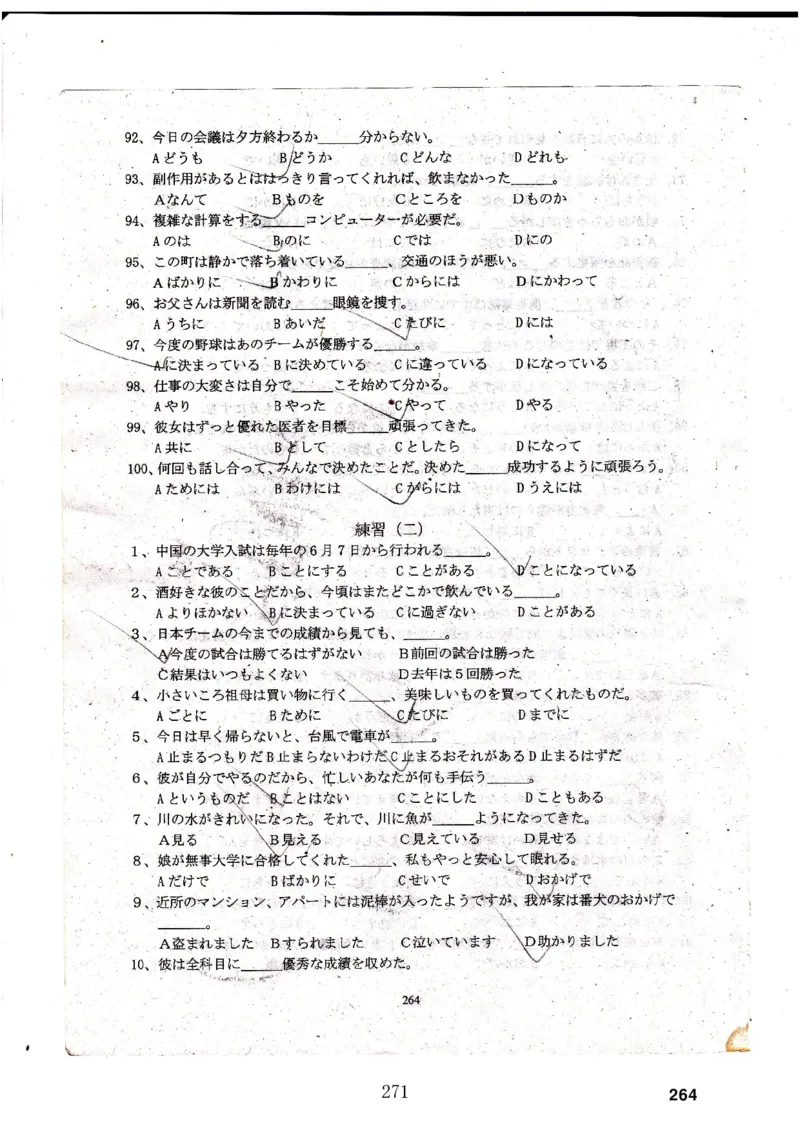 92、今日の会議は夕方終わるか_____分からない。
Aどうも Bどうか Cどんな Dどれも
93、副作用があるとははっきり言ってくれれば、飲まなかった_____。
Aなんて Bものを Cところを Dものか
94、複雑な計算をする_____コンピューターが必要だ。
Aのは Bのに Cでは Dにの
95、この町は静かで落ち着いている_____、交通のほうが悪い。
Aばかりに Bかわりに Cからには Dにかわって
96、お父さんは新聞を読む_____眼鏡を捜す。
Aうちに Bあいだ Cたびに Dには
97、今度の野球はあのチームが優勝する_____。
Aに決まっている Bに決めている Cに違っている Dになっている
98、仕事の大変さは自分で_____こそ始めて分かる。
Aやり Bやった Cやって Dやる
99、彼女はずっと優れた医者を目標_____頑張ってきた。
A共に Bとして Cとしたら Dになって
100、何回も話し合って、みんなで決めたことだ。決めた_____成功するように頑張ろう。
Aためには Bわけには Cからには Dうえには
練習（二）
1、中国の大学入試は毎年の6月7日から行われる_____。
Aことである Bことにする Cことがある Dことになっている
2、酒好きな彼のことだから、今頃はまたどこかで飲んでいる_____。
Aよりほかない Bに決まっている Cに過ぎない Dことがある
3、日本チームの今までの成績から見ても、_____。
A今度の試合は勝てるはずがない B前回の試合は勝った
C結果はいつもよくない D去年は5回勝った
4、小さいころ祖母は買い物に行く_____、美味しいものを買ってくれたものだ。
Aごとに Bために Cたびに Dまでに
5、今日は早く帰らないと、台風で電車が_____。
A止まるつもりだ B止まらないわけだ C止まるおそれがある D止まるはずだ
6、彼が自分でやるのだから、忙しいあなたが何も手伝う_____。
Aというものだ Bことはない Cことにした Dこともある
7、川の水がきれいになった。それで、川に魚が_____ようになってきた。
A見る B見える C見えている D見せる
8、娘が無事大学に合格してくれた_____、私もやっと安心して眠れる。
Aだけで Bばかりに Cせいで Dおかげで
9、近所のマンション、アパートには泥棒が入ったようですが、我が家は番犬のおかげで
_____。
A盗まれました Bすられました C泣いています D助かりました
10、彼は全科目に_____優秀な成績を収めた。
264
271
264